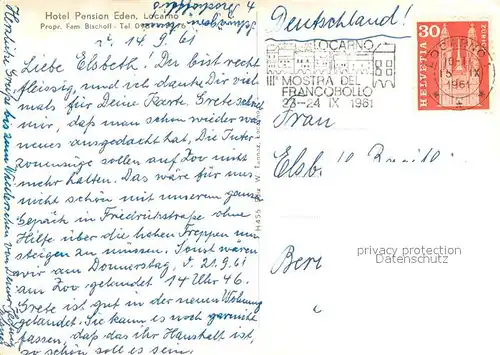 Hotel Pension Eden, Locarno
Propr. Fam. Bischoff - Tel. 
14. 9. 61
Liebe Elsbeth! Du bist recht
fleissig, und ich danke Dir viel
mals für Deine Karte. Grete schreibt
mir, daß man schon wieder was
neues ausgedacht hat. Die Inter
zonenzüge sollen auf Zoo nicht
mehr halten. Das wäre für uns
nicht schön mit unserem ganzen
Gepäck in Friedrichstraße ohne
Hilfe über die hohen Treppen um
steigen zu müssen. Sonst wären
wir am Donnerstag, d. 21. 9. 61
am Zoo gelandet 14 Uhr 46.
Grete ist gut in der neuen Wohnung
gelandet. Sie kann es noch garnicht
fassen, daß das ihr Haushalt ist,
so schön soll es sein.
Herzliche Grüße bis zum Wiedersehen von Deiner
Deutschland!
LOCARNO
IIIª MOSTRA DEL
FRANCOBOLLO
23-24 IX 1961
30
HELVETIA
LOCARNO
1961
Frau
Elsb
Berl
H 455
privacy protection